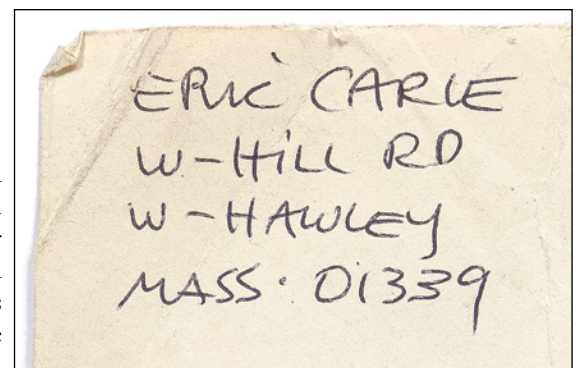 ERIC CARLE
W-HILL RD
W-HAWLEY
MASS. 01339